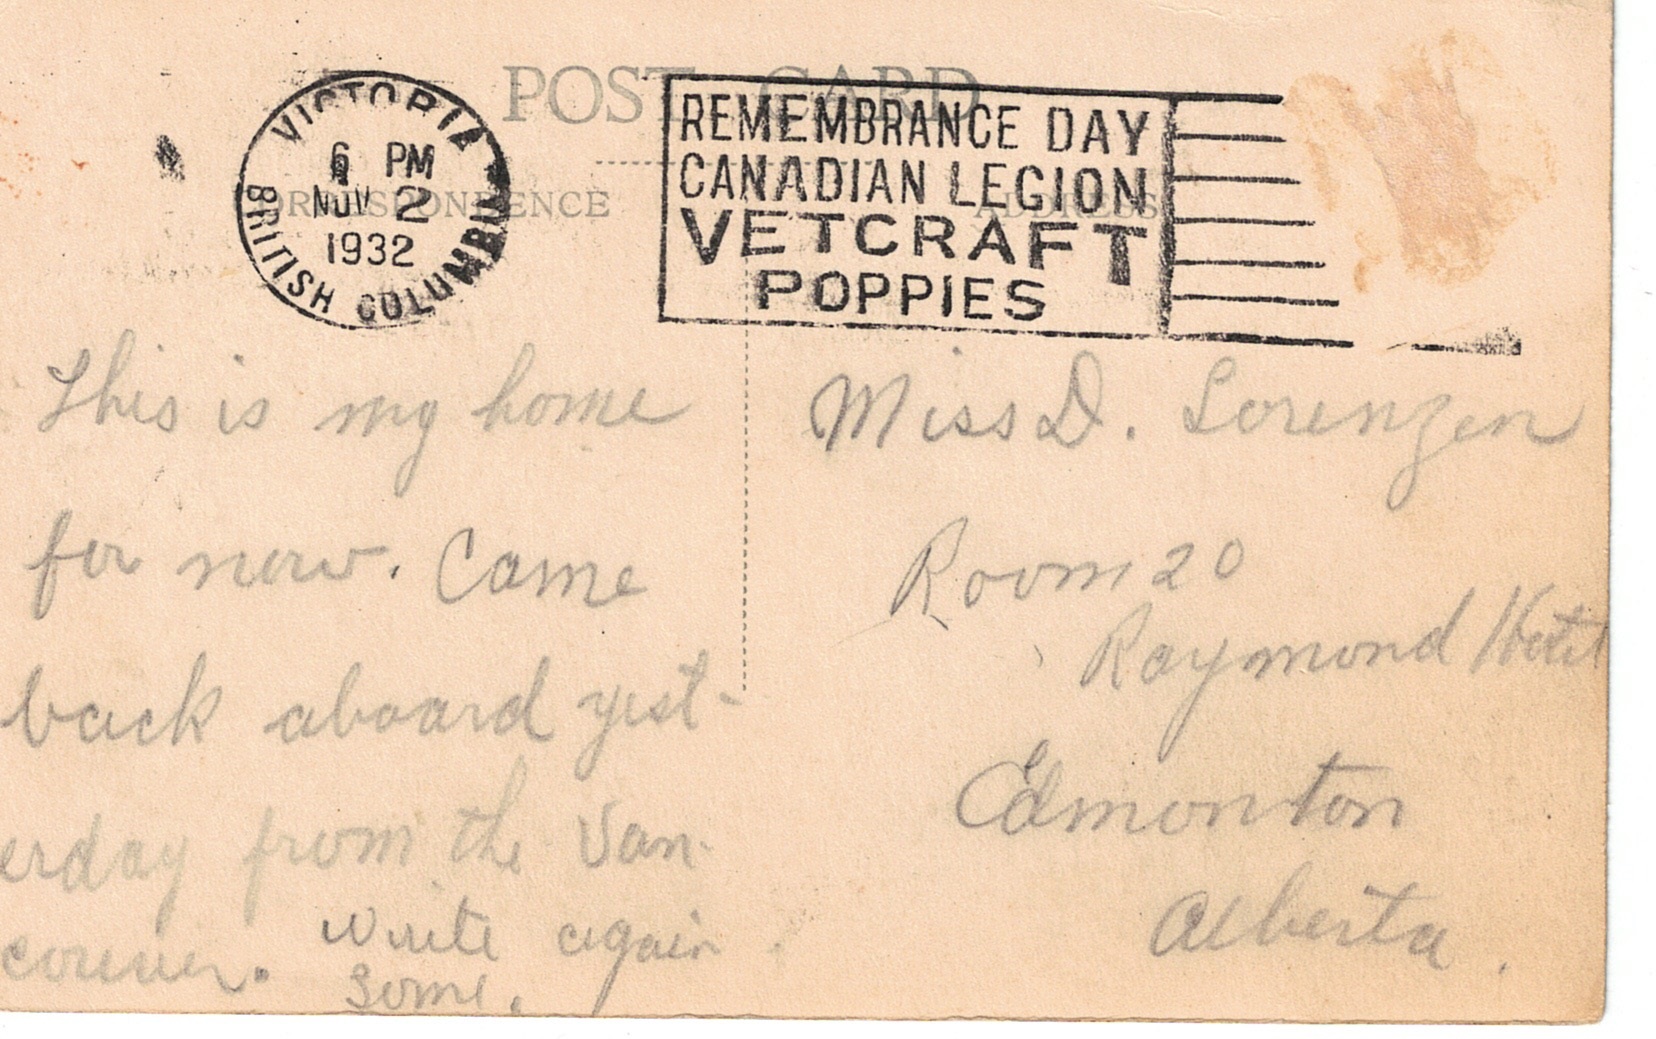 POST CARD
VICTORIA
6 PM
NOV 2
1932
BRITISH COLUMBIA
REMEMBRANCE DAY
CANADIAN LEGION
VETCRAFT
POPPIES
CORRESPONDENCE
ADDRESS
This is my home
for now. Came
back aboard yest-
erday from the Van-
couver. Write again
some.
Miss D. Lorenzen
Room 20
Raymond Hotel
Edmonton
Alberta.